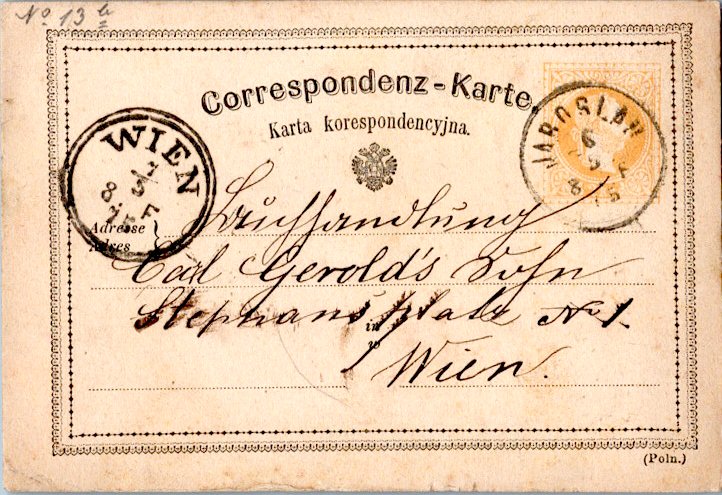 No 13
Correspondenz-Karte.
Karta korespondencyjna.
WIEN
JAROSLAU
Adresse
Adres
Buchhandlung
Carl Gerold's Sohn
Stephansplatz No 1.
in
w
Wien.
(Poln.)